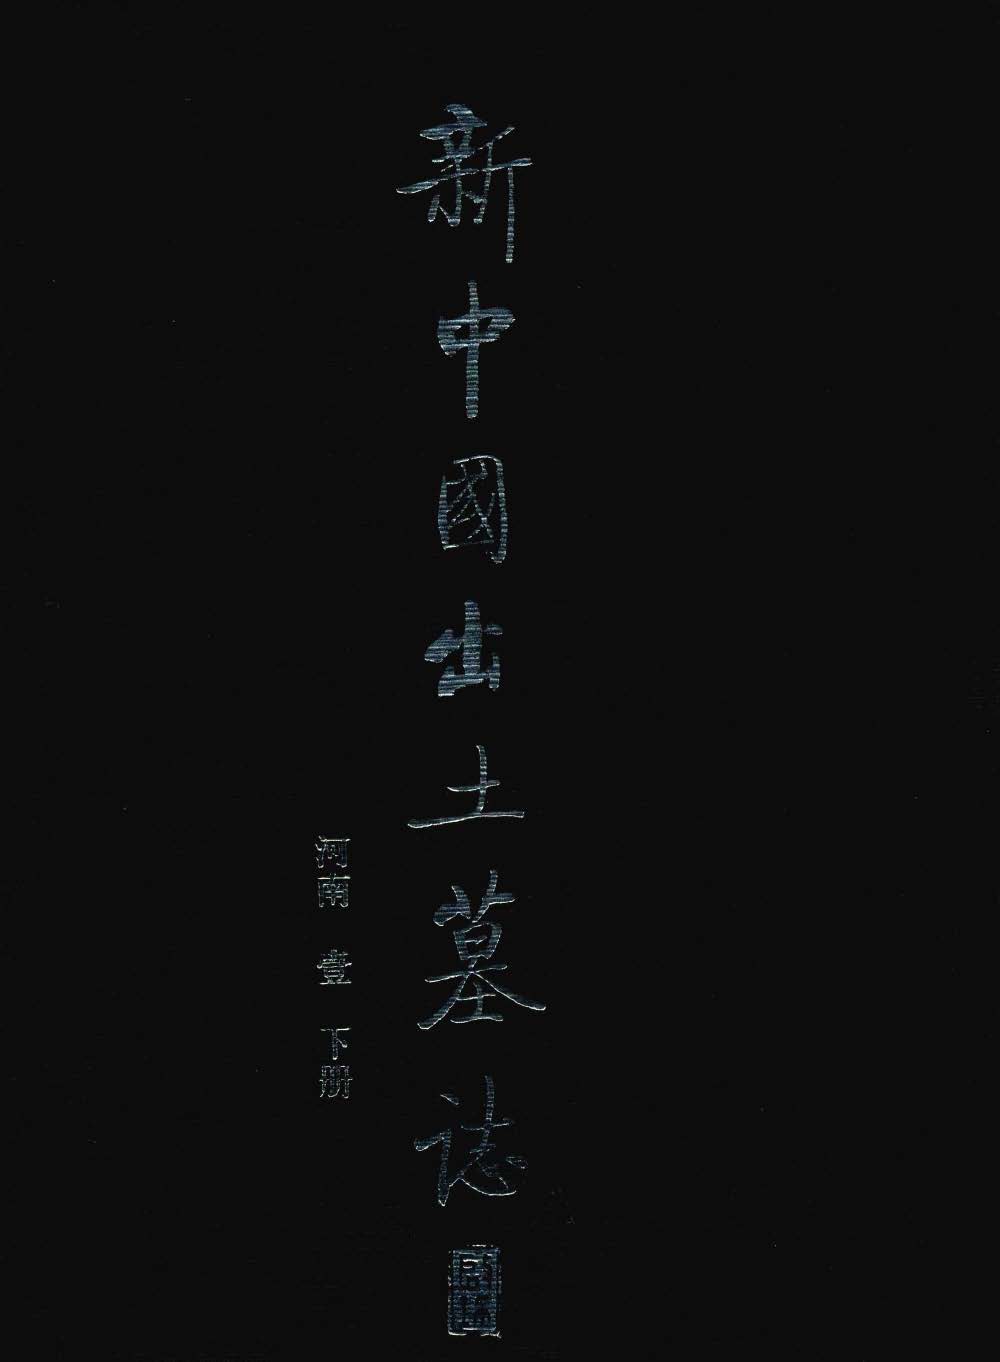 新中國出土墓誌
河南 壹 下册